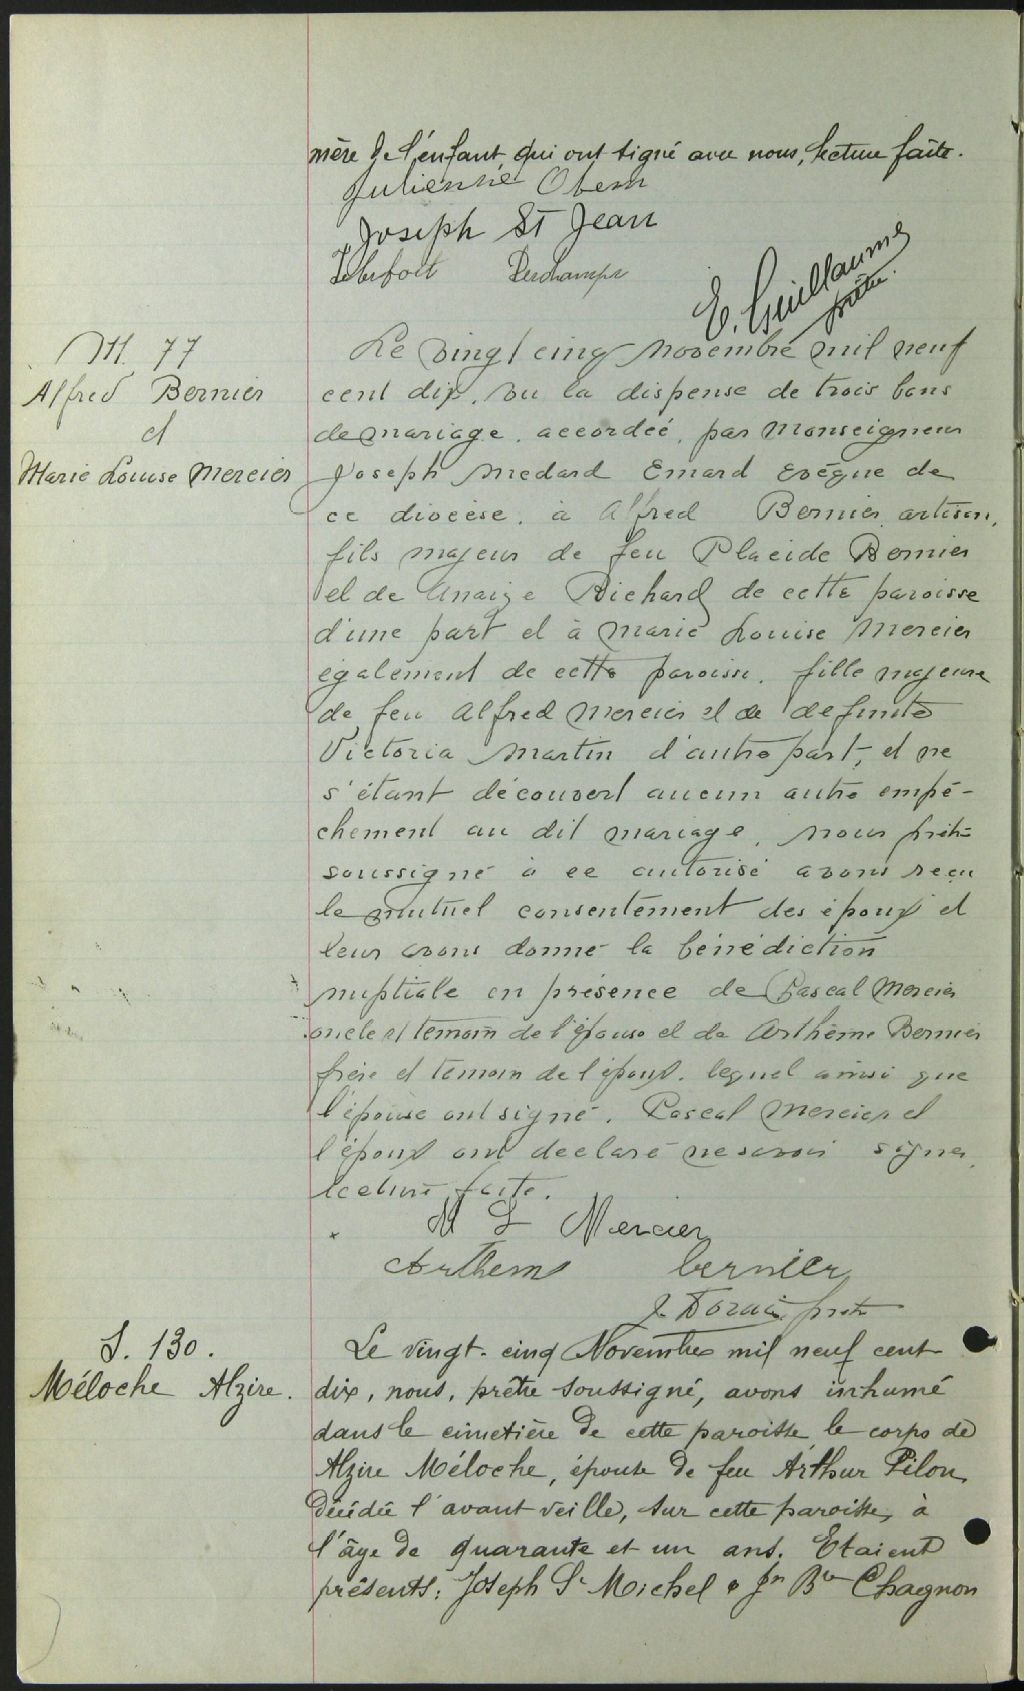 mère de l'enfant qui ont signé avec nous, lecture faite.
Julienne Obern
Joseph St Jean
Deschamps
E. Guillaume
prêtre.
M. 77
Alfred Bernier
et
Marie Louise Mercier
Le vingt cinq novembre mil neuf
cent dix, vu la dispense de trois bans
de mariage accordée par Monseigneur
Joseph Medard Emard Evêque de
ce diocèse, à Alfred Bernier artisan,
fils majeur de feu Placide Bernier
et de Unaize Richard de cette paroisse
d'une part et à Marie Louise Mercier
également de cette paroisse, fille majeure
de feu Alfred Mercier et de defunte
Victoria Martin d'autre part, et ne
s'étant découvert aucun autre empê-
chement au dit mariage, nous prêtre
soussigné à ce autorisé avons reçu
le mutuel consentement des époux et
leur avons donné la bénédiction
nuptiale en présence de Pascal Mercier
oncle et temoin de l'épouse et de Arthème Bernier
frère et temoin de l'époux, lequel ainsi que
l'épouse ont signé. Pascal Mercier et
l'époux ont declaré ne savoir signer,
lecture faite.
M L Mercier
Arthem bernier
J. Dorais ptre
S. 130.
Méloche Alzire.
Le vingt-cinq Novembre mil neuf cent
dix, nous, prêtre soussigné, avons inhumé
dans le cimetière de cette paroisse le corps de
Alzire Méloche, épouse de feu Arthur Pilon,
décédée l'avant veille, sur cette paroisse, à
l'âge de quarante et un ans. Etaient
présents: Joseph St Michel & Jn Bte Chagnon